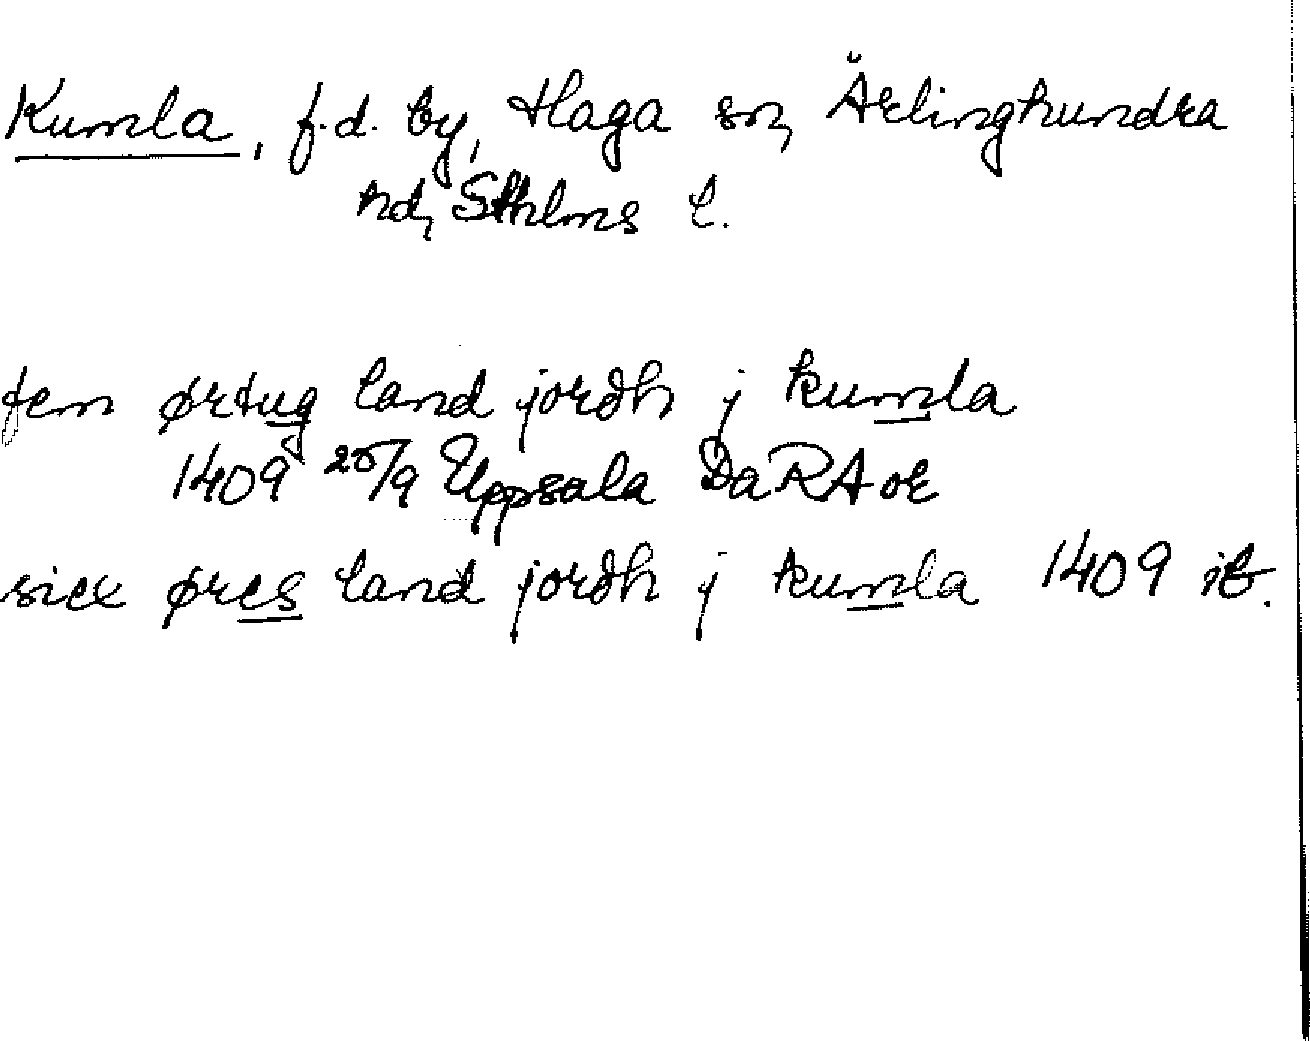 Kumla, f.d. by, Haga sn, Ärlinghundra
hd, Sthlms l.
fem ørtug land jordh j kumla
1409 25/9 Uppsala DaRA or
siex øres land jordh j kumla 1409 ib.